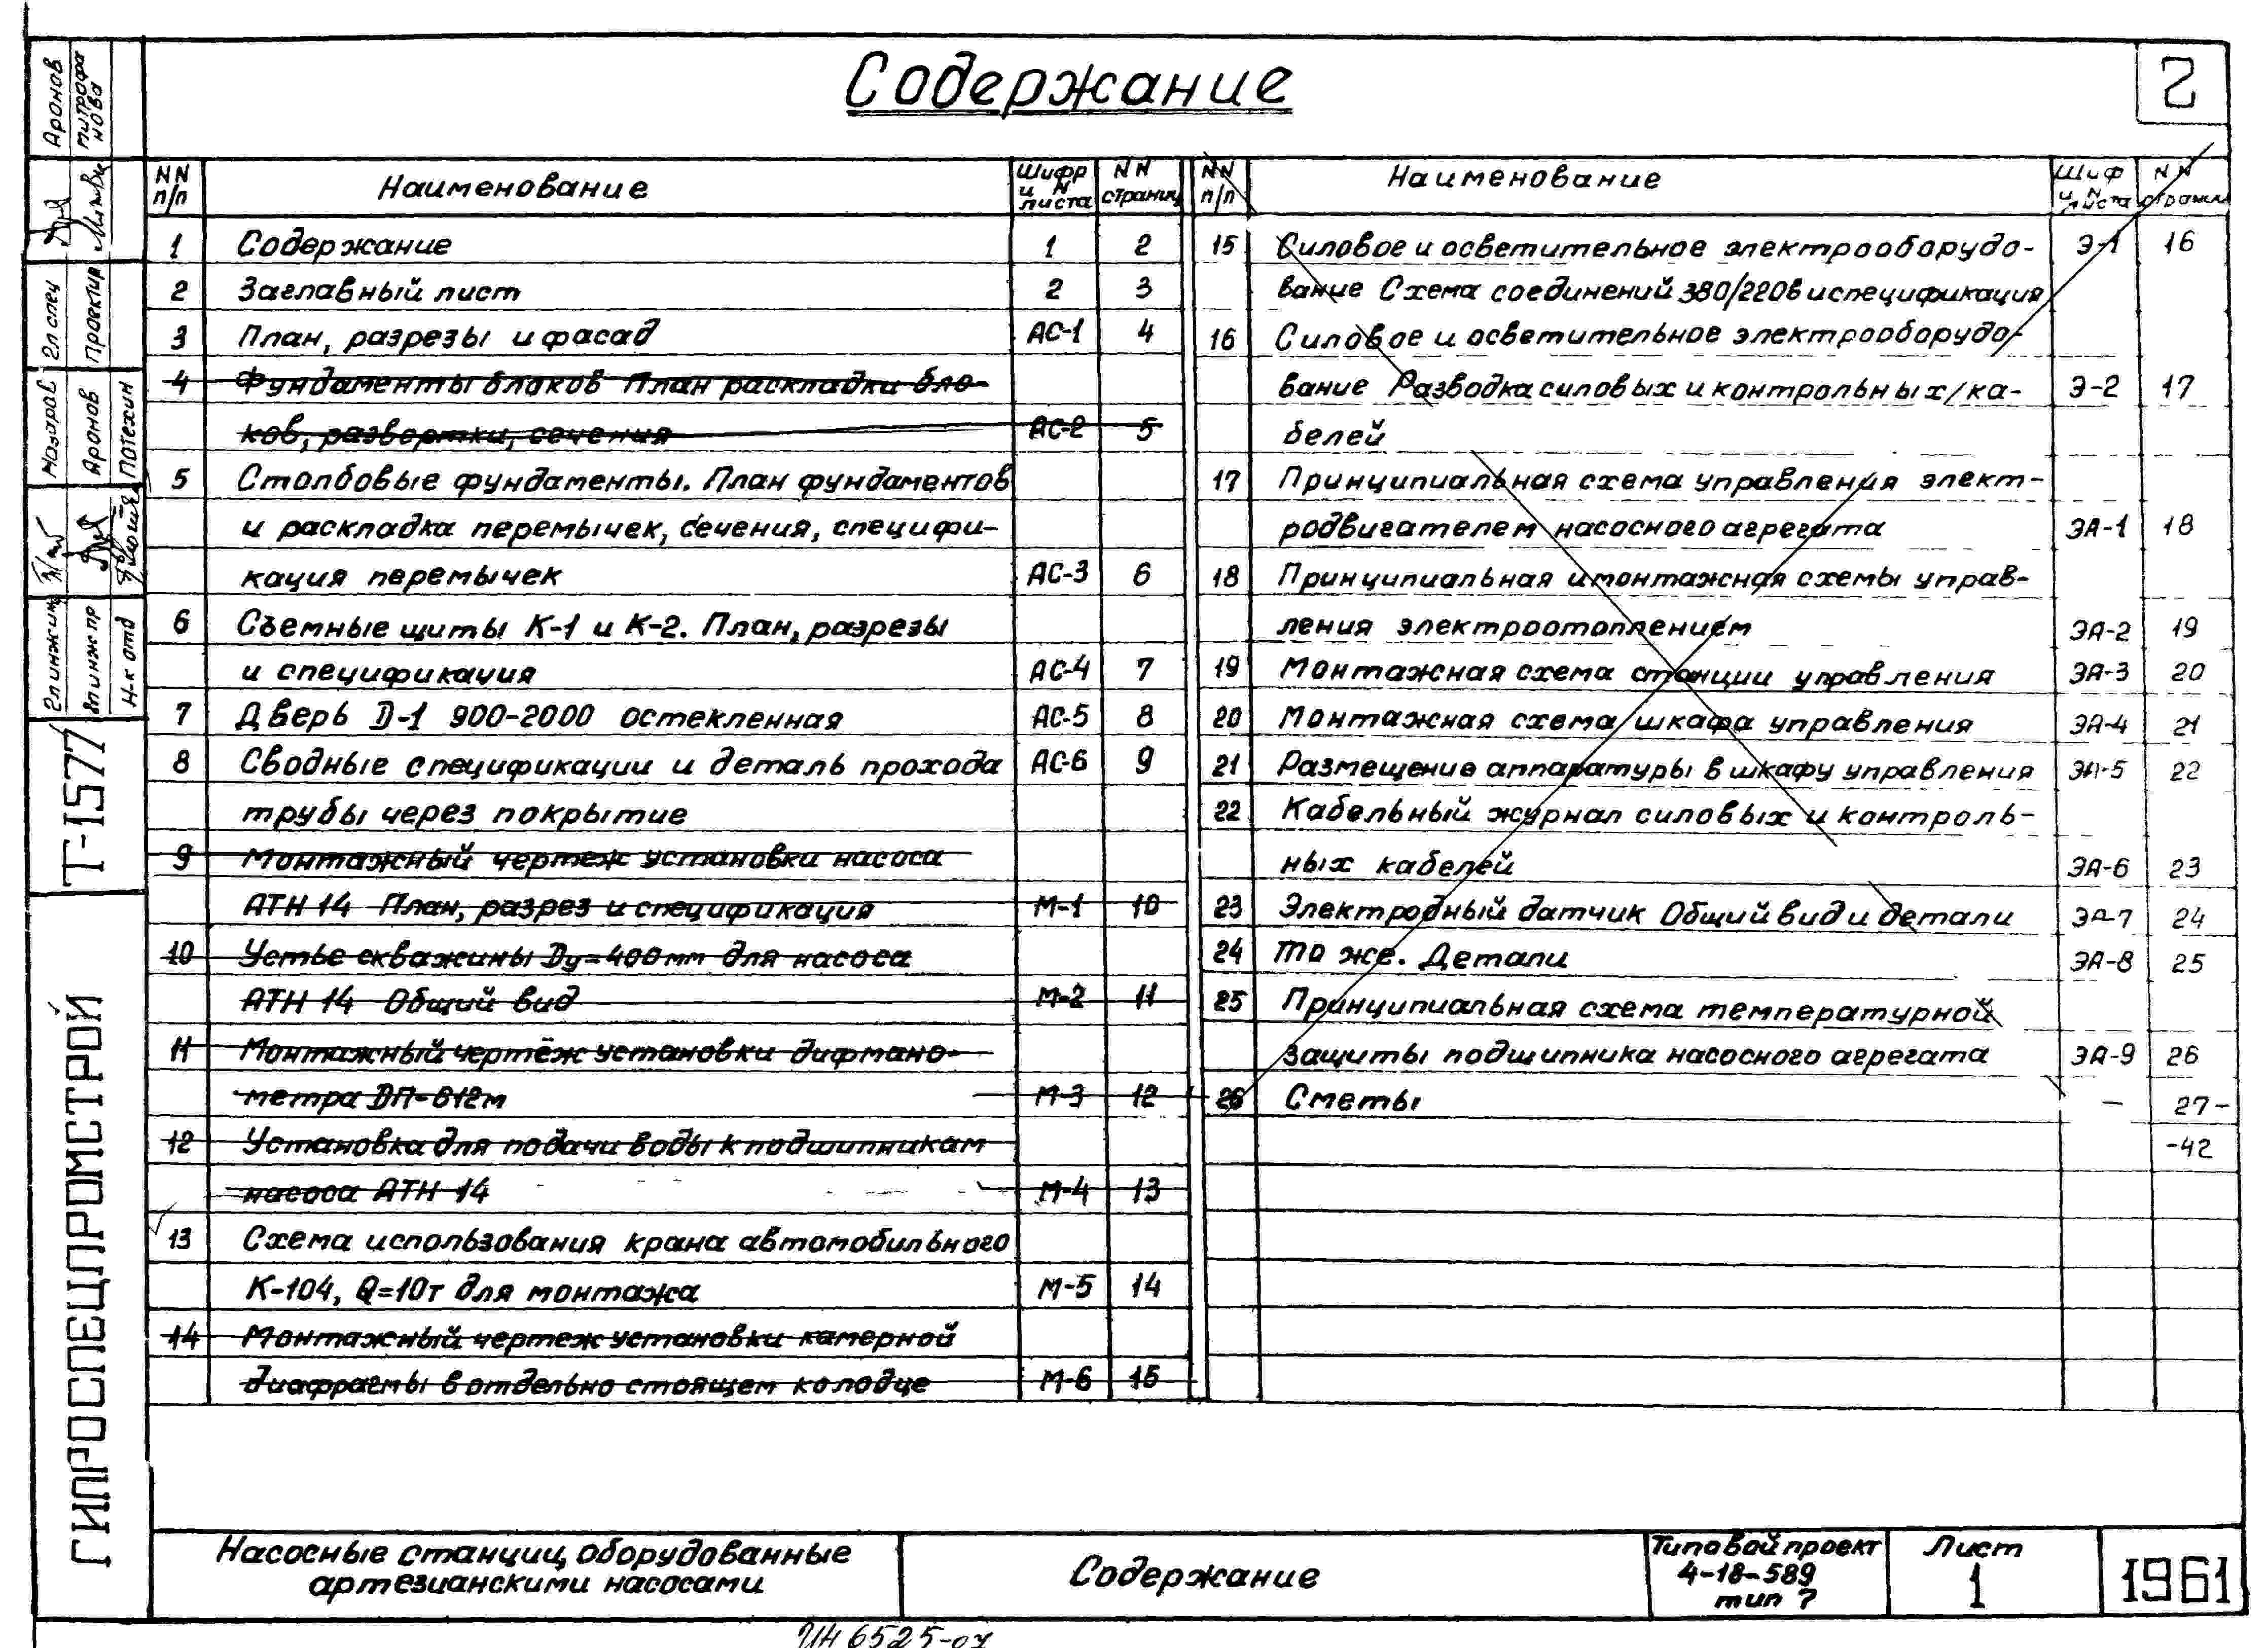 Содержание
2
NN п/п
Наименование
Шифр и N листа
NN страниц
1 Содержание 1 2
2 Заглавный лист 2 3
3 План, разрезы и фасад АС-1 4
4 Фундаменты блоков План раскладки бло-
ков, развертки, сечения АС-2 5
5 Столбовые фундаменты. План фундаментов
и раскладка перемычек, сечения, специфи-
кация перемычек АС-3 6
6 Съемные щиты К-1 и К-2. План, разрезы
и спецификация АС-4 7
7 Дверь D-1 900-2000 остекленная АС-5 8
8 Сводные спецификации и деталь прохода АС-6 9
трубы через покрытие
9 Монтажный чертеж установки насоса
АТН 14 План, разрез и спецификация М-1 10
10 Устье скважины Dу=400мм для насоса
АТН 14 Общий вид М-2 11
11 Монтажный чертёж установки дифмано-
метра ДП-612м М-3 12
12 Установка для подачи воды к подшипникам
насоса АТН 14 М-4 13
13 Схема использования крана автомобильного
К-104, Q=10т для монтажа М-5 14
14 Монтажный чертеж установки камерной
диафрагмы в отдельно стоящем колодце М-6 15
NN п/п
Наименование
Шиф и N листа
NN страниц
15 Силовое и осветительное электрооборудо- Э-1 16
вание Схема соединений 380/220в и спецификация
16 Силовое и осветительное электрооборудо-
вание Разводка силовых и контрольных/ка- Э-2 17
белей
17 Принципиальная схема управления элект-
родвигателем насосного агрегата ЭА-1 18
18 Принципиальная и монтажная схемы управ-
ления электроотоплением ЭА-2 19
19 Монтажная схема станции управления ЭА-3 20
20 Монтажная схема шкафа управления ЭА-4 21
21 Размещение аппаратуры в шкафу управления ЭА-5 22
22 Кабельный журнал силовых и контроль-
ных кабелей ЭА-6 23
23 Электродный датчик Общий вид и детали ЭА-7 24
24 То же. Детали ЭА-8 25
25 Принципиальная схема температурной
защиты подшипника насосного агрегата ЭА-9 26
26 Сметы – 27-
-42
Аронов
Митрофанова
Гл спец
Проектир
Назаров
Аронов
Потехин
Гл инжин
Гл инж пр
Н-к отд
Т-1577
ГИПРОСПЕЦПРОМСТРОЙ
Насосные станции, оборудованные
артезианскими насосами
Содержание
Типовой проект
4-18-589
тип 7
Лист
1
1961
ИН 6525-07